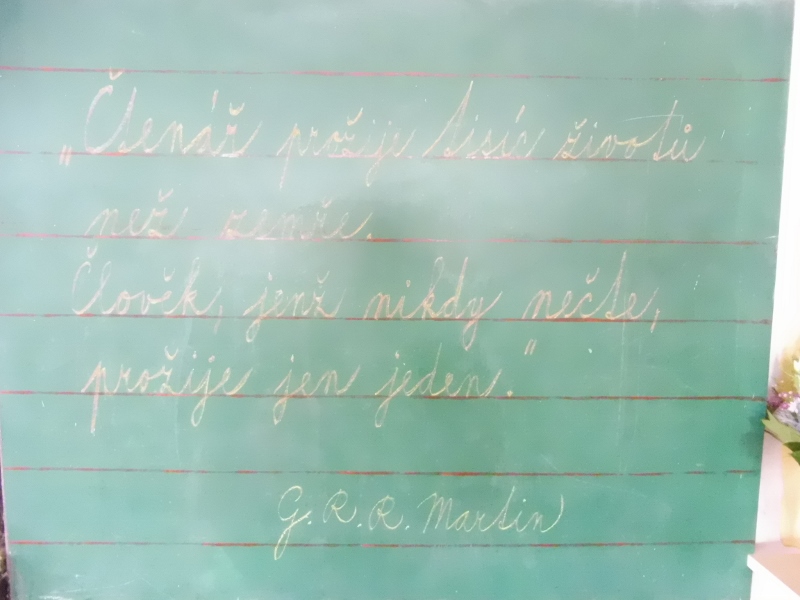 „Čtenář prožije tisíc životů
než zemře.
Člověk, jenž nikdy nečte,
prožije jen jeden."
G. R. R. Martin